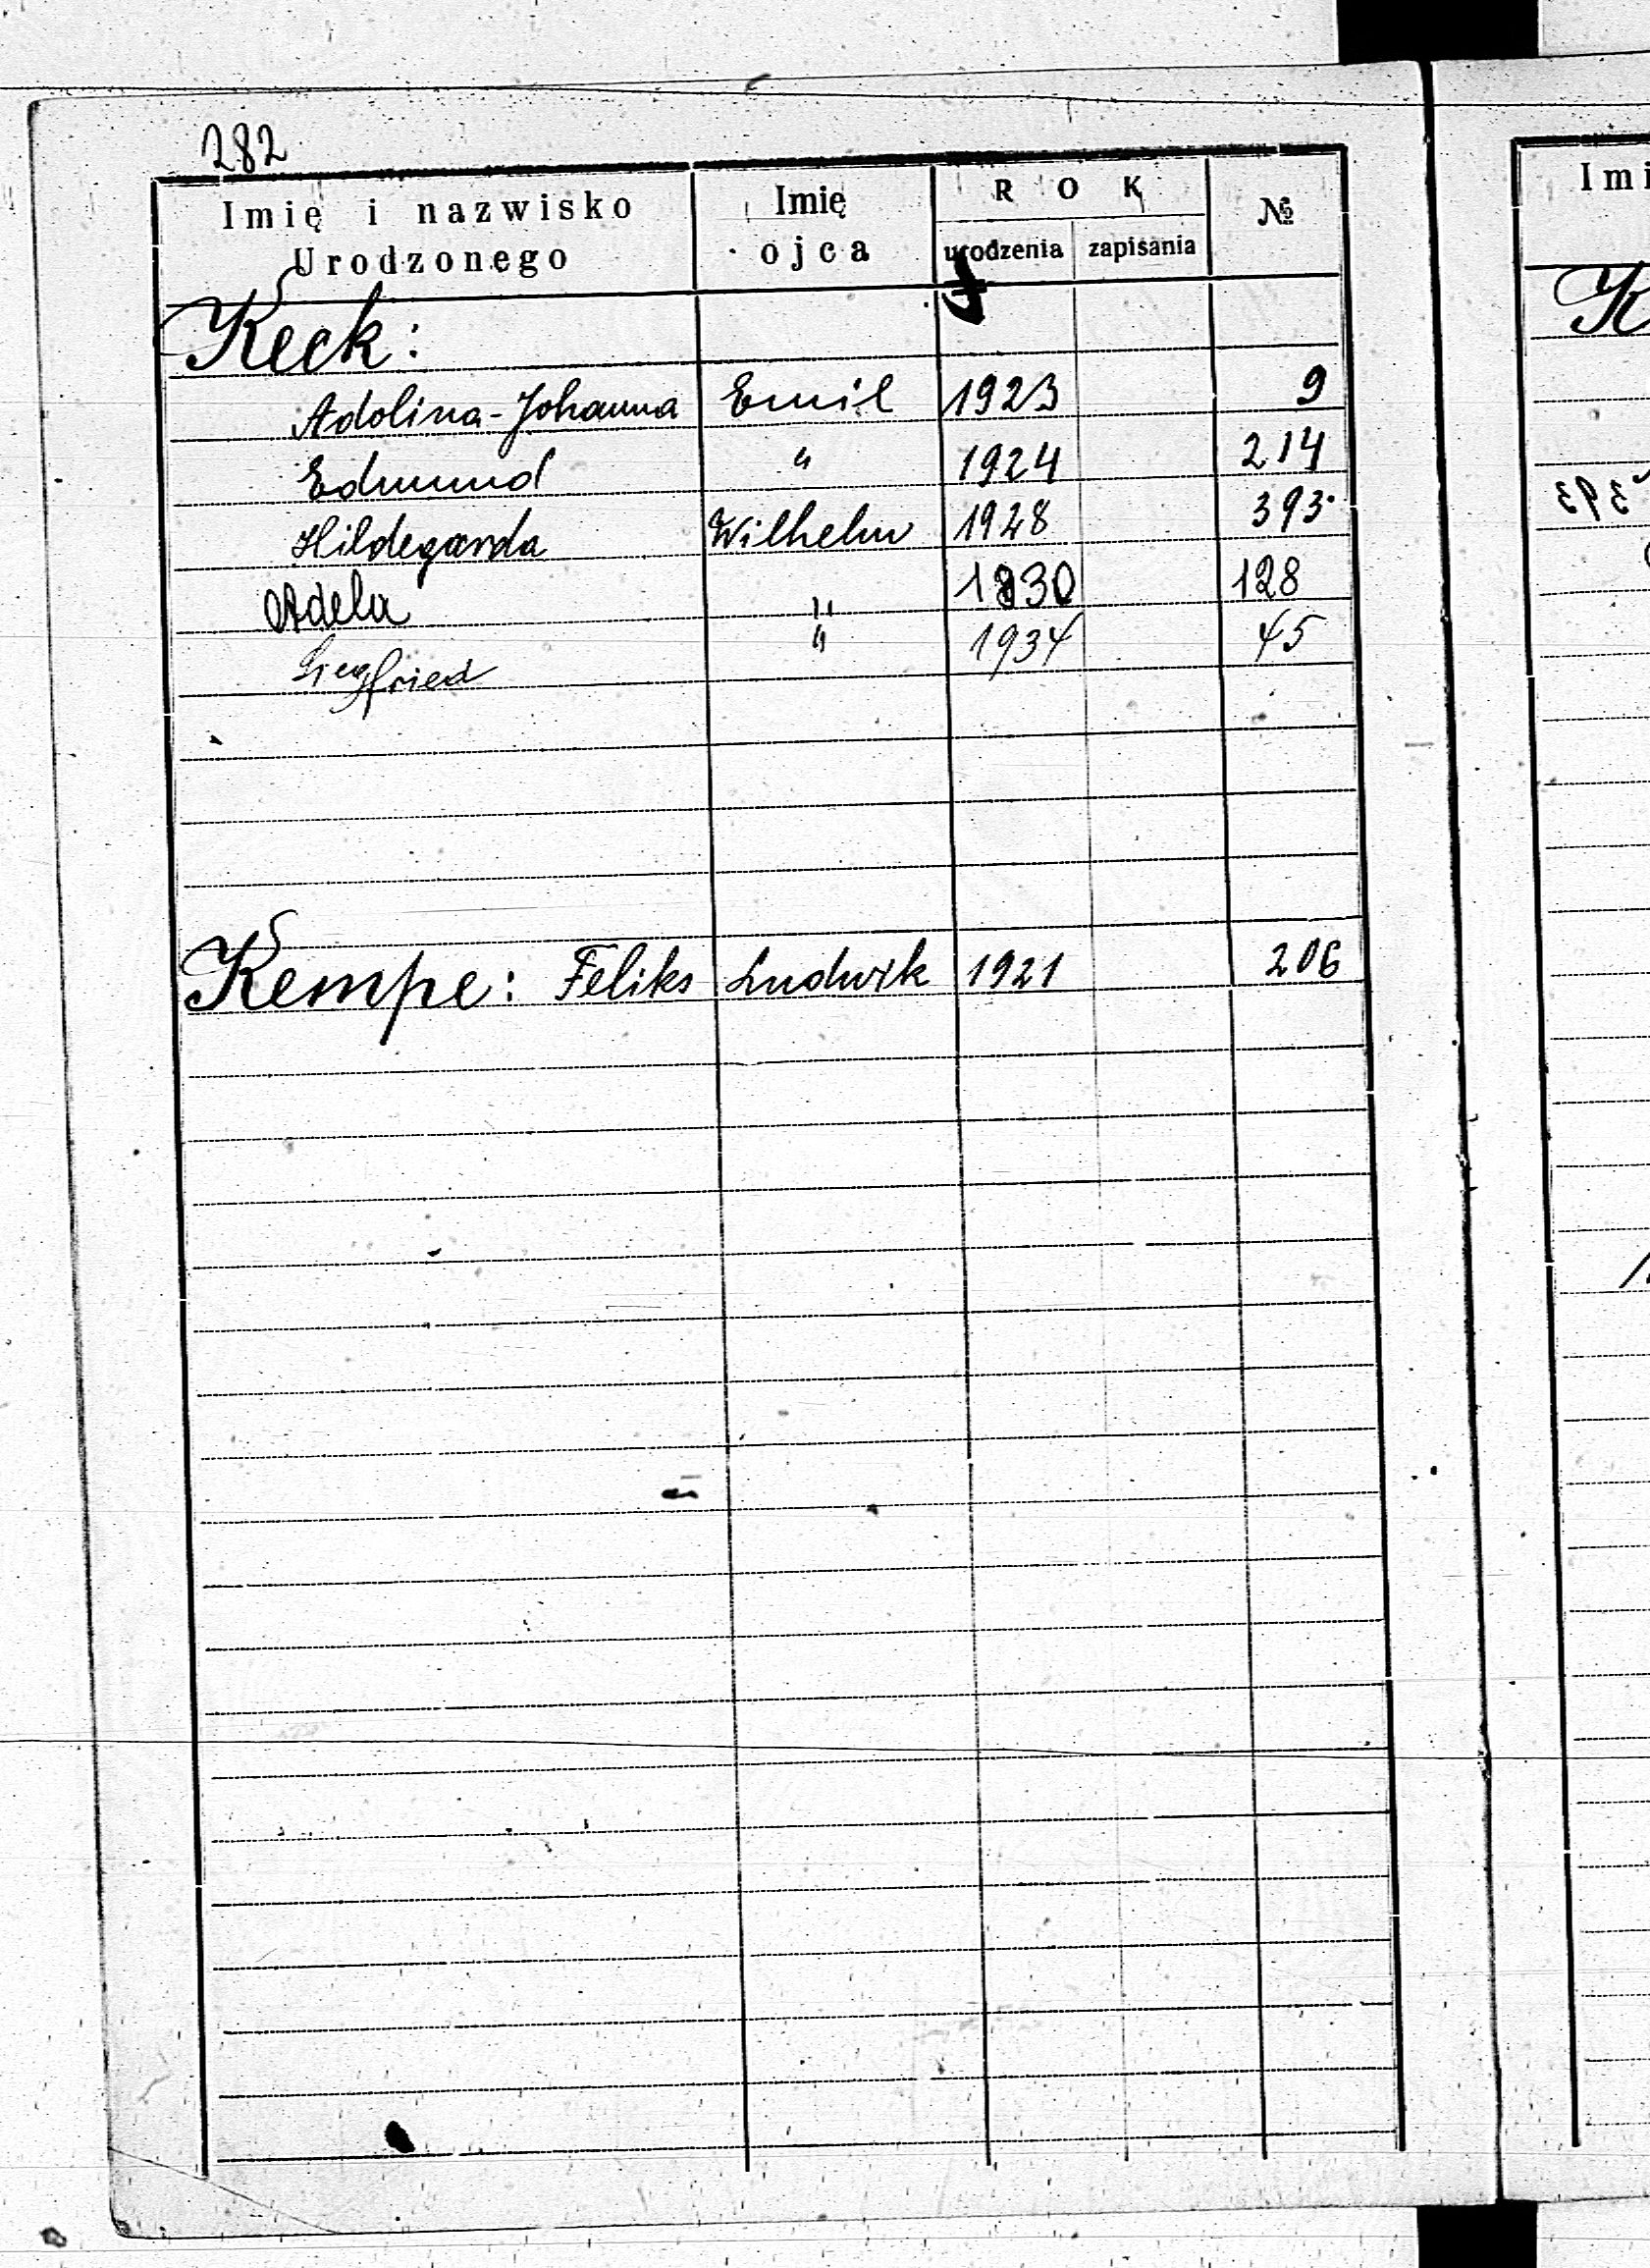 282
Imię i nazwisko Urodzonego | Imię ojca | ROK urodzenia | zapisania | №
Keck:
Adolina-Johanna | Emil | 1923 | 9
Edmund | " | 1924 | 214
Hildegarda | Wilhelm | 1928 | 393
Adela | " | 1930 | 128
Siegfried | " | 1934 | 45
Kempe: Feliks | Ludwik | 1921 | 206
Imi
K